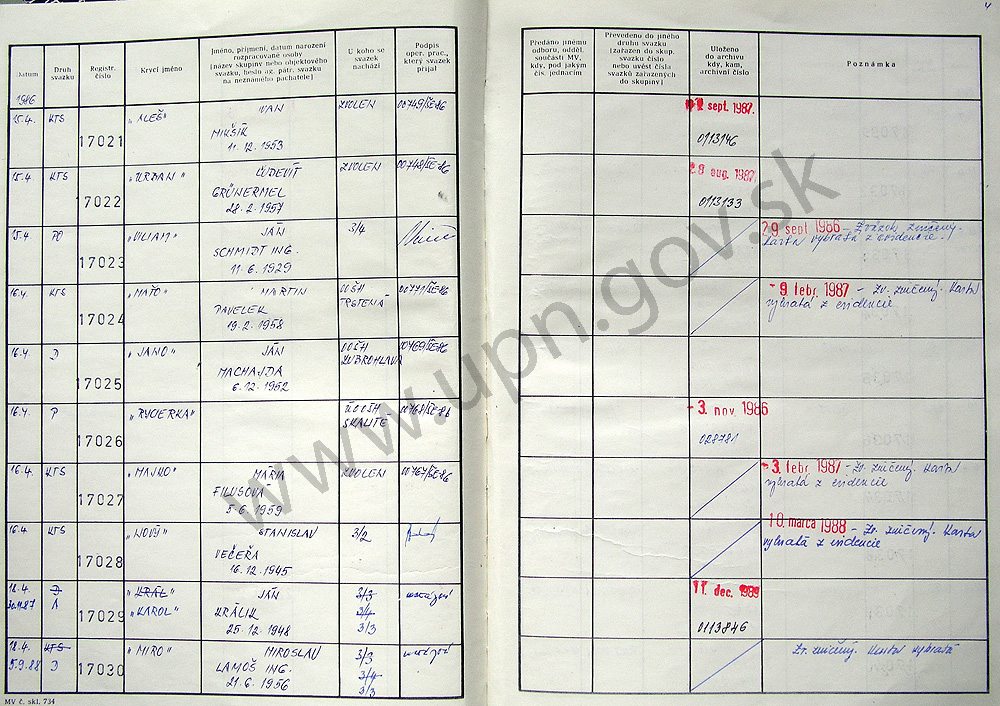 4
Datum
Druh svazku
Registr. číslo
Krycí jméno
Jméno, příjmení, datum narození
rozpracované osoby
(název skupiny nebo objektového
svazku, heslo ag. pátr. svazku
na neznámého pachatele)
U koho se
svazek
nachází
Podpis
oper. prac.,
který svazek
přijal
Předáno jinému
odboru, odděl.
součásti MV,
kdy, pod jakým
čís. jednacím
Převedeno do jiného
druhu svazku
(zařazen do skup.
svazků číslo
nebo uvést čísla
svazků zařazených
do skupiny)
Uloženo
do archivu
kdy, kam,
archivní číslo
Poznámka
1986
15.4. KTS 17021 "ALEŠ" IVAN ZVOLEN 00749/ŠE-86 sept. 1987.
MIKŠÍK
11.12.1953 0113146
15.4. KTS 17022 "URBAN" ĽUDEVÍT ZVOLEN 00748/ŠE-86 28 aug. 1987.
GRÜNERMEL
28.2.1957 0113133
15.4. PO 17023 "VILIAM" JÁN 3/4 29 sept 1986 - Zväzok zničený.
SCHMIDT ING. Karta vybratá z evidencie.
11.6.1929
16.4. KTS 17024 "MAŤO" MARTIN OOŠH 00771/ŠE-86 - 9 febr. 1987 - Zv. zničený. Karta
PAVELEK TRSTENÁ vybratá z evidencie
19.2.1958
16.4 D 17025 "JANO" JÁN OOŠH 00769/ŠE-86
MACHAJDA ZUBROHLAVA
6.12.1952
16.4. P 17026 ÚOOŠH 00768/ŠE-86 - 3. nov. 1986
SKALITÉ 028781
16.4. KTS 17027 "MAJKO" MÁRIA ZVOLEN 00767/ŠE-86 - 3. febr. 1987 - Zv. zničený. Karta
FILUSOVÁ vybratá z evidencie
5.6.1959
16.4. KTS 17028 "NOVÝ" STANISLAV 3/2 10. marca 1988 - Zv. zničený. Karta
VEČEŘA vybratá z evidencie
16.12.1945
18.4. D 17029 "KRÁL" JÁN 3/3 11. dec. 1989
A "KAROL" KRÁLIK 3/4
25.12.1948 3/3 0113846
18.4. KTS 17030 "MIRO" MIROSLAV 3/3 Zv. zničený. Karta vybratá
5.9.88 D LAMOŠ ING. 3/4
21.6.1956 3/3
MV č. skl. 734
www.upn.gov.sk